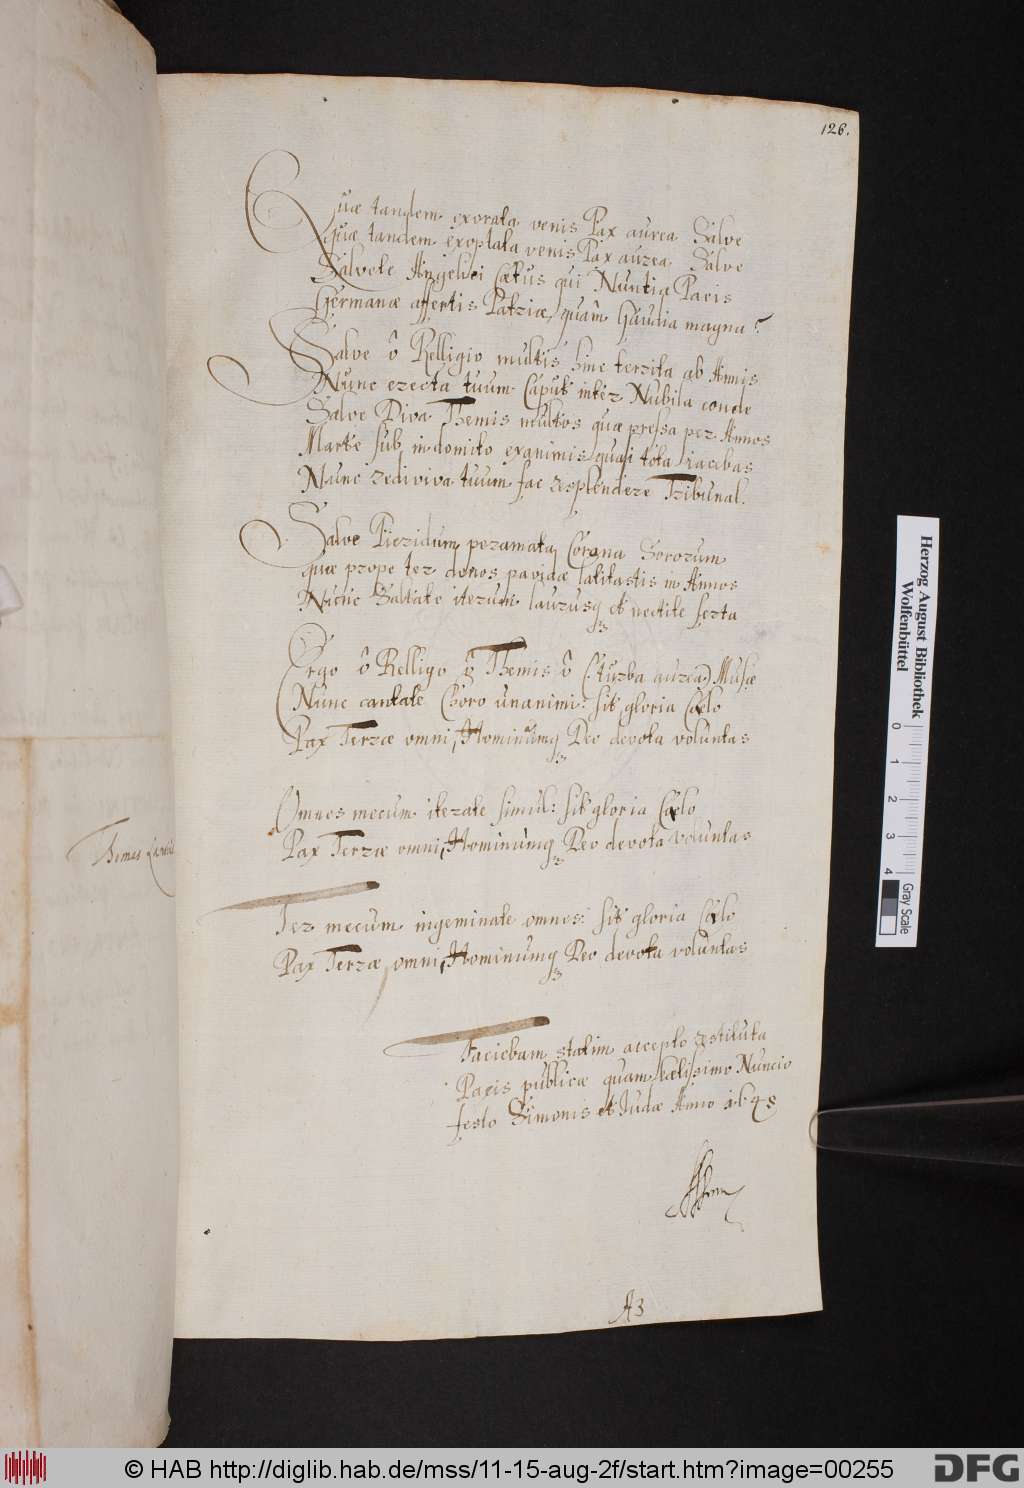 126.
Quæ tandem exorata venis Pax aurea Salve
quæ tandem exoptata venis Pax aurea Salve
Salvete Angelici Cætus qui Nuntia Pacis
Germanæ affertis Patriæ, quam Gaudia magna?
Salve ô Relligio multis hinc territa ab Annis
Nunc erecta tuum Caput inter Nubila conde
Salve Diva Themis multos quæ pressa per Annos
Marte sub indomito exanimis quasi tota iacebas
Nunc rediviva tuum fac resplendere Tribunal.
Salve Pieridum peramata Corona Sororum
quæ prope ter denos pavidæ latitastis in Annos
Nunc Saltate iterum laurusq et nectite serta
Ergo ô Relligo ô Themis ô (turba aurea) Musæ
Nunc cantate Choro unanimi: sit gloria Cœlo
Pax Terræ omni, Hominumq Deo devota voluntas
Omnes mecum iterate simul: sit gloria Cœlo
Pax Terræ omni, Hominumq Deo devota voluntas
Ter mecum ingeminate omnes: sit gloria Cœlo
Pax Terræ omni, Hominumq Deo devota voluntas
Faciebam statim accepto restituta
Pacis publicæ quam lætissimo Nuncio
festo Simonis et Judæ Anno 1648
A3
Herzog August Bibliothek
Wolfenbüttel
0 1 2 3 4
Gray Scale
© HAB http://diglib.hab.de/mss/11-15-aug-2f/start.htm?image=00255
DFG